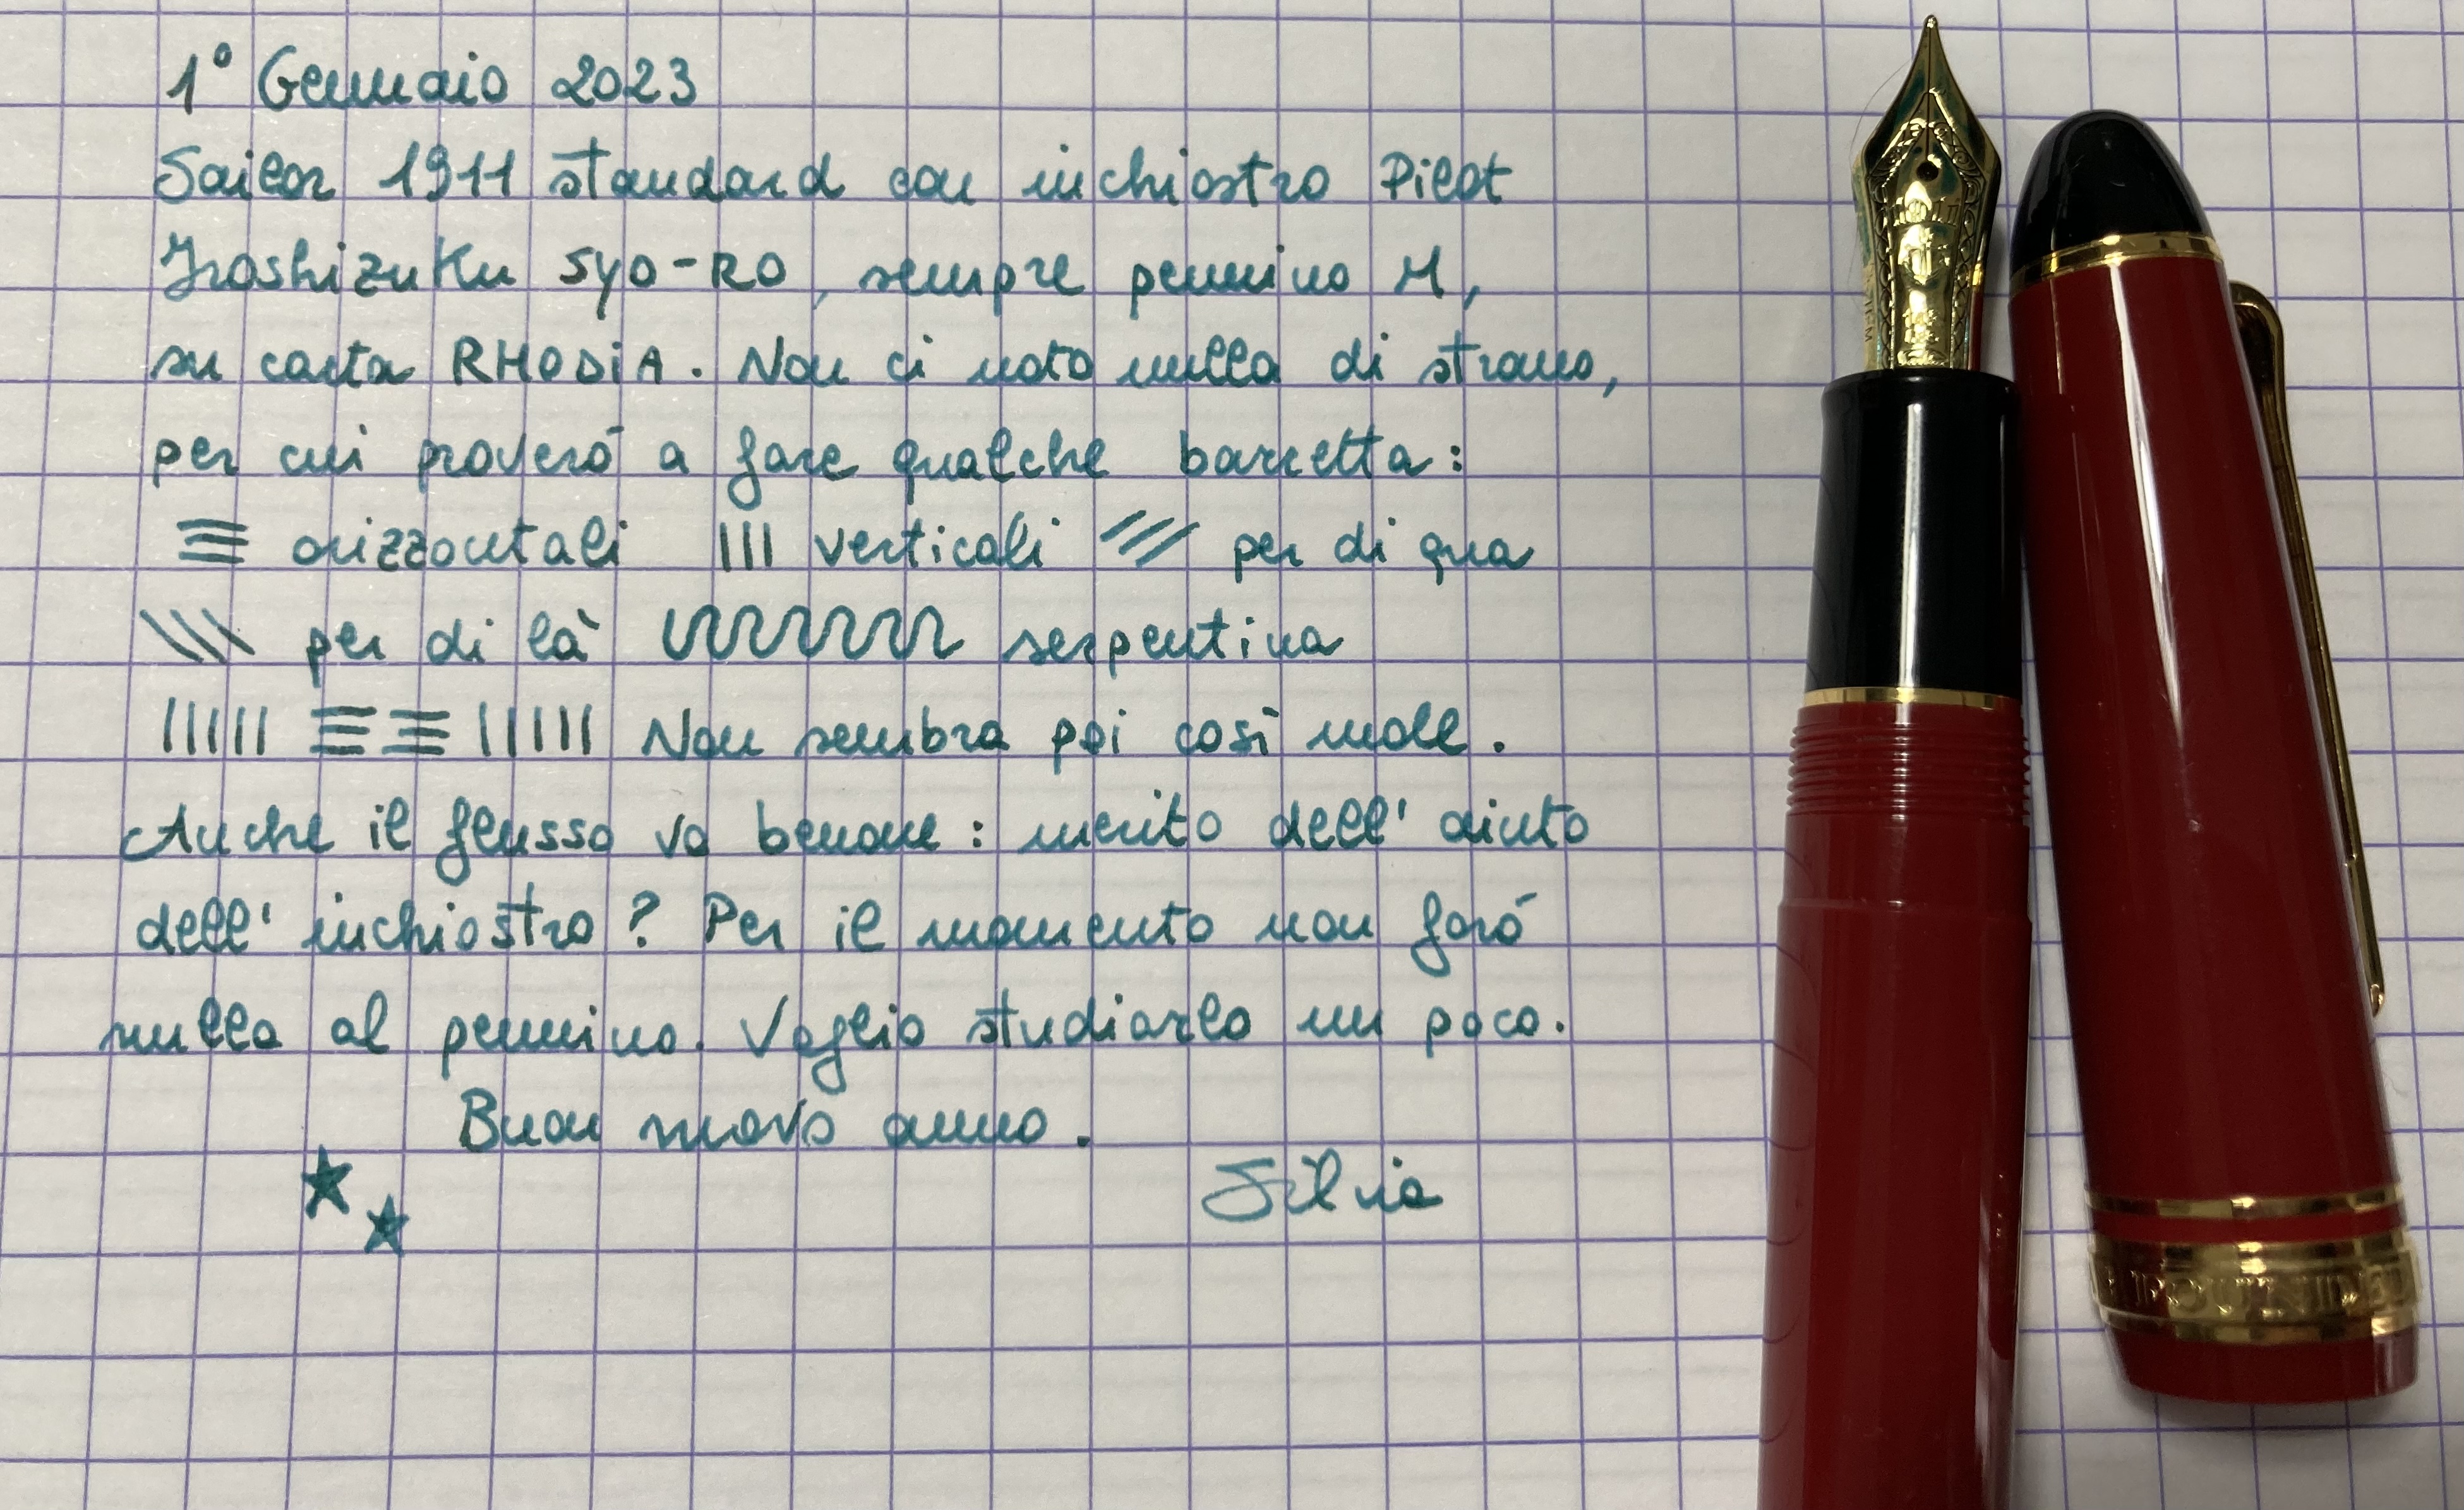 1° Gennaio 2023
Sailor 1911 standard con inchiostro Pilot
Iroshizuku syo-ro, sempre pennino M,
su carta RHODIA. Non ci noto nulla di strano,
per cui proverò a fare qualche barretta:
orizzontali verticali per di qua
per di là serpentina
Non sembra poi così male.
Anche il flusso va benone: merito dell'aiuto
dell'inchiostro? Per il momento non farò
nulla al pennino. Voglio studiarlo un poco.
Buon nuovo anno.
Silvia